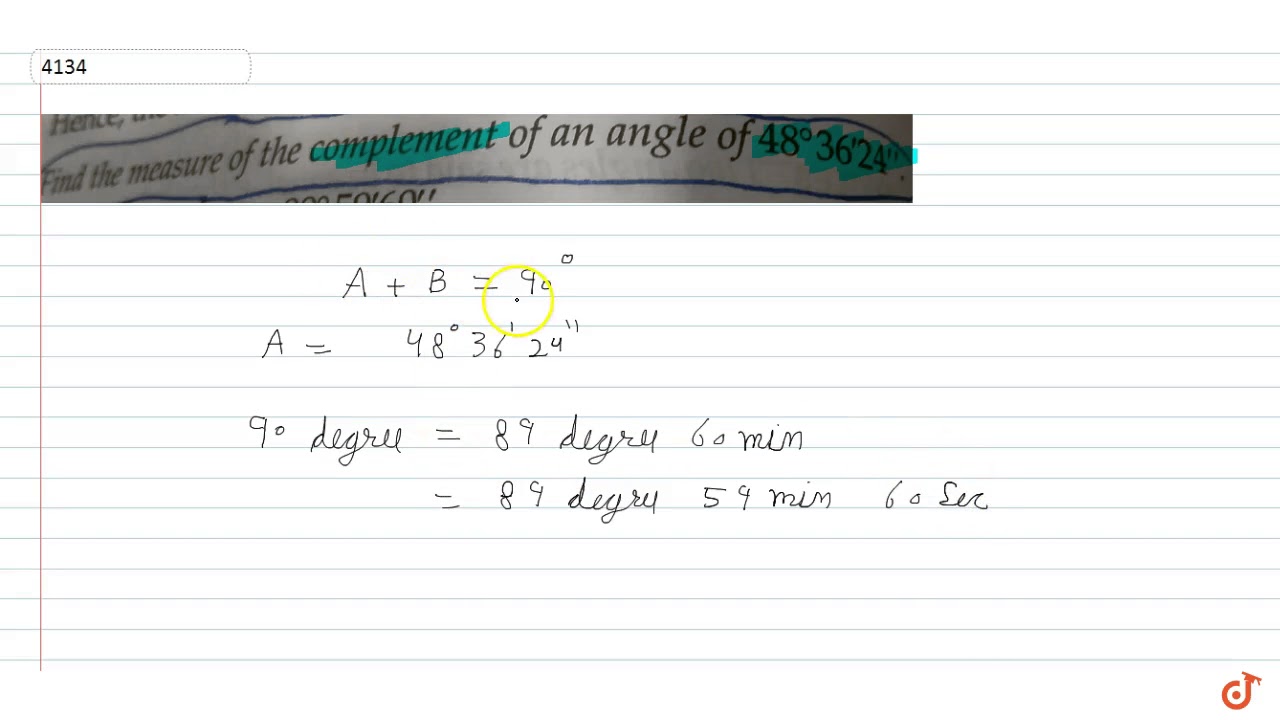 4134
Hence, the
Find the measure of the complement of an angle of 48°36'24".
A + B = 90°
A = 48° 36' 24"
90 degree = 89 degree 60 min
= 89 degree 59 min 60 Sec